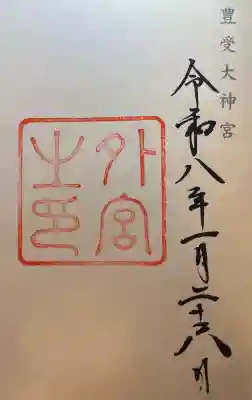 豊受大神宮
令和八年一月二十八日
外宮之印